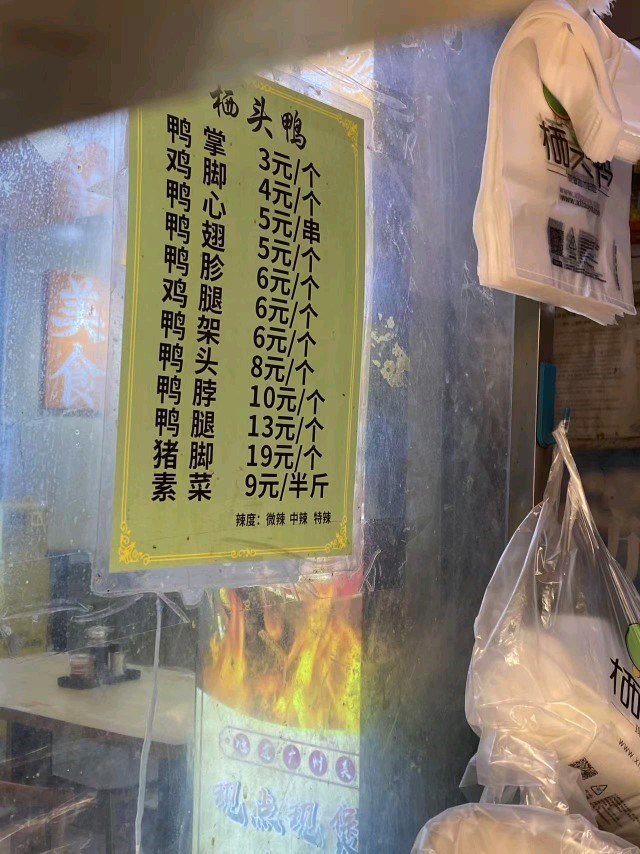 栖头鸭
鸭掌 3元/个
鸡脚 4元/个
鸭心 5元/串
鸭翅 5元/个
鸭胗 6元/个
鸡腿 6元/个
鸭架 6元/个
鸭头 8元/个
鸭脖 10元/个
鸭腿 13元/个
猪脚 19元/个
素菜 9元/半斤
辣度：微辣 中辣 特辣
美食
现点现
栖头
栖